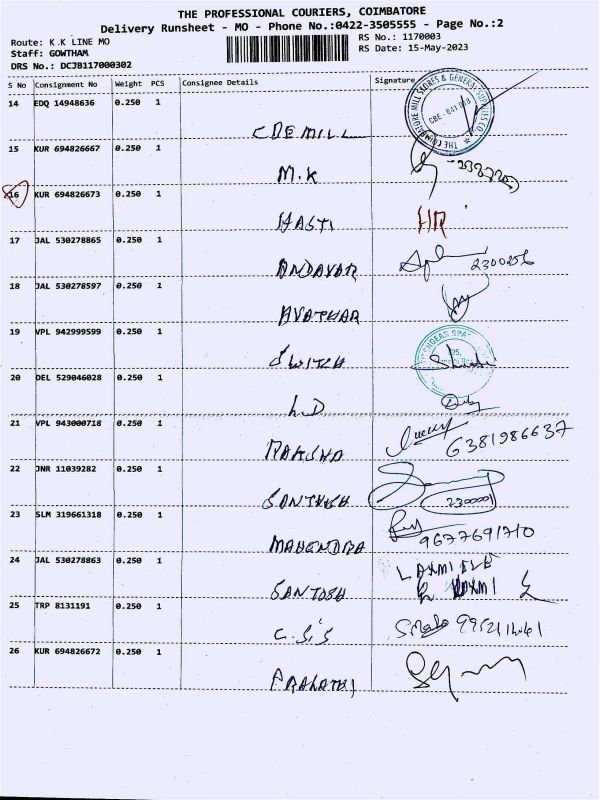 THE PROFESSIONAL COURIERS, COIMBATORE
Delivery Runsheet - MO - Phone No.:0422-3505555 - Page No.:2
Route: K.K LINE MO
RS No.: 1170003
Staff: GOWTHAM
RS Date: 15-May-2023
DRS No.: DCJB117000302
S No Consignment No Weight PCS Consignee Details Signature
14 EDQ 14948636 0.250 1
THE COIMBATORE MILL STORES & GENERAL SUPPLIES CO
CBE - 641 018
CDE MILL
15 KUR 694826667 0.250 1
M.K
16 KUR 694826673 0.250 1
HASTI HR
17 JAL 530278865 0.250 1
ANDAVAR 2300256
18 JAL 530278597 0.250 1
AVATHAR
19 VPL 942999599 0.250 1
SWITCH
20 DEL 529046028 0.250 1
L.D
21 VPL 943000718 0.250 1
RAKSHA 6381986637
22 JNR 11039282 0.250 1
SANTHOSH 2300001
23 SLM 319661318 0.250 1
MAHENDRA 9677691710
24 JAL 530278863 0.250 1
LAXMI ELE
SANTOSH LAXMI
25 TRP 8131191 0.250 1
C.S.S
26 KUR 694826672 0.250 1